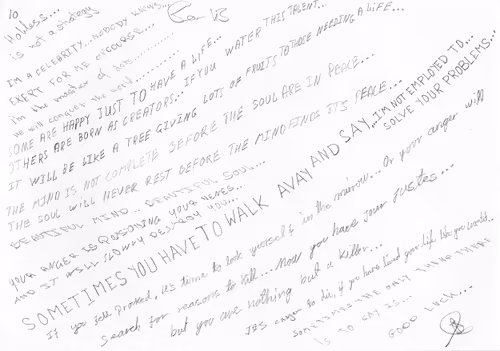 10
Hobless...
is not a strategy
I'M A CELEBRITY...NOBODY KNOWS...
EXEPT FOR ME OFCOURSE...
i'm the master of
we will conquer the world............
SOME ARE HAPPY JUST TO HAVE A LIFE...
OTHERS ARE BORN AS CREATORS...IF YOU WATER THIS TALENT...
IT WILL BE LIKE A TREE GIVING LOTS OF FRUITS TO THOSE NEEDING A LIFE...
THE MIND IS NOT COMPLETE BEFORE THE SOUL ARE IN PEACE...
THE SOUL WILL NEVER REST BEFORE THE MIND FINDS ITS PEACE...
BEAUTIFUL MIND... BEAUTIFUL SOUL...
YOUR ANGER IS POISONING YOUR
AND IT WILL SLOWLY DESTROY YOU...
SOMETIMES YOU HAVE TO WALK AVAY AND SAY...I'M NOT EMPLOYED TO...
SOLVE YOUR PROBLEMS...
If you feel provked, it's time to look yourself in the mirrow... Or your anger will
search for reasons to kill... Now you have your justes...
but you are nothing but a killer...
It's easyer to die, if you have lived your life like you would..
SOMETIMES THE ONLY THING THERE
IS TO SAY IS...
GOOD LUCK...